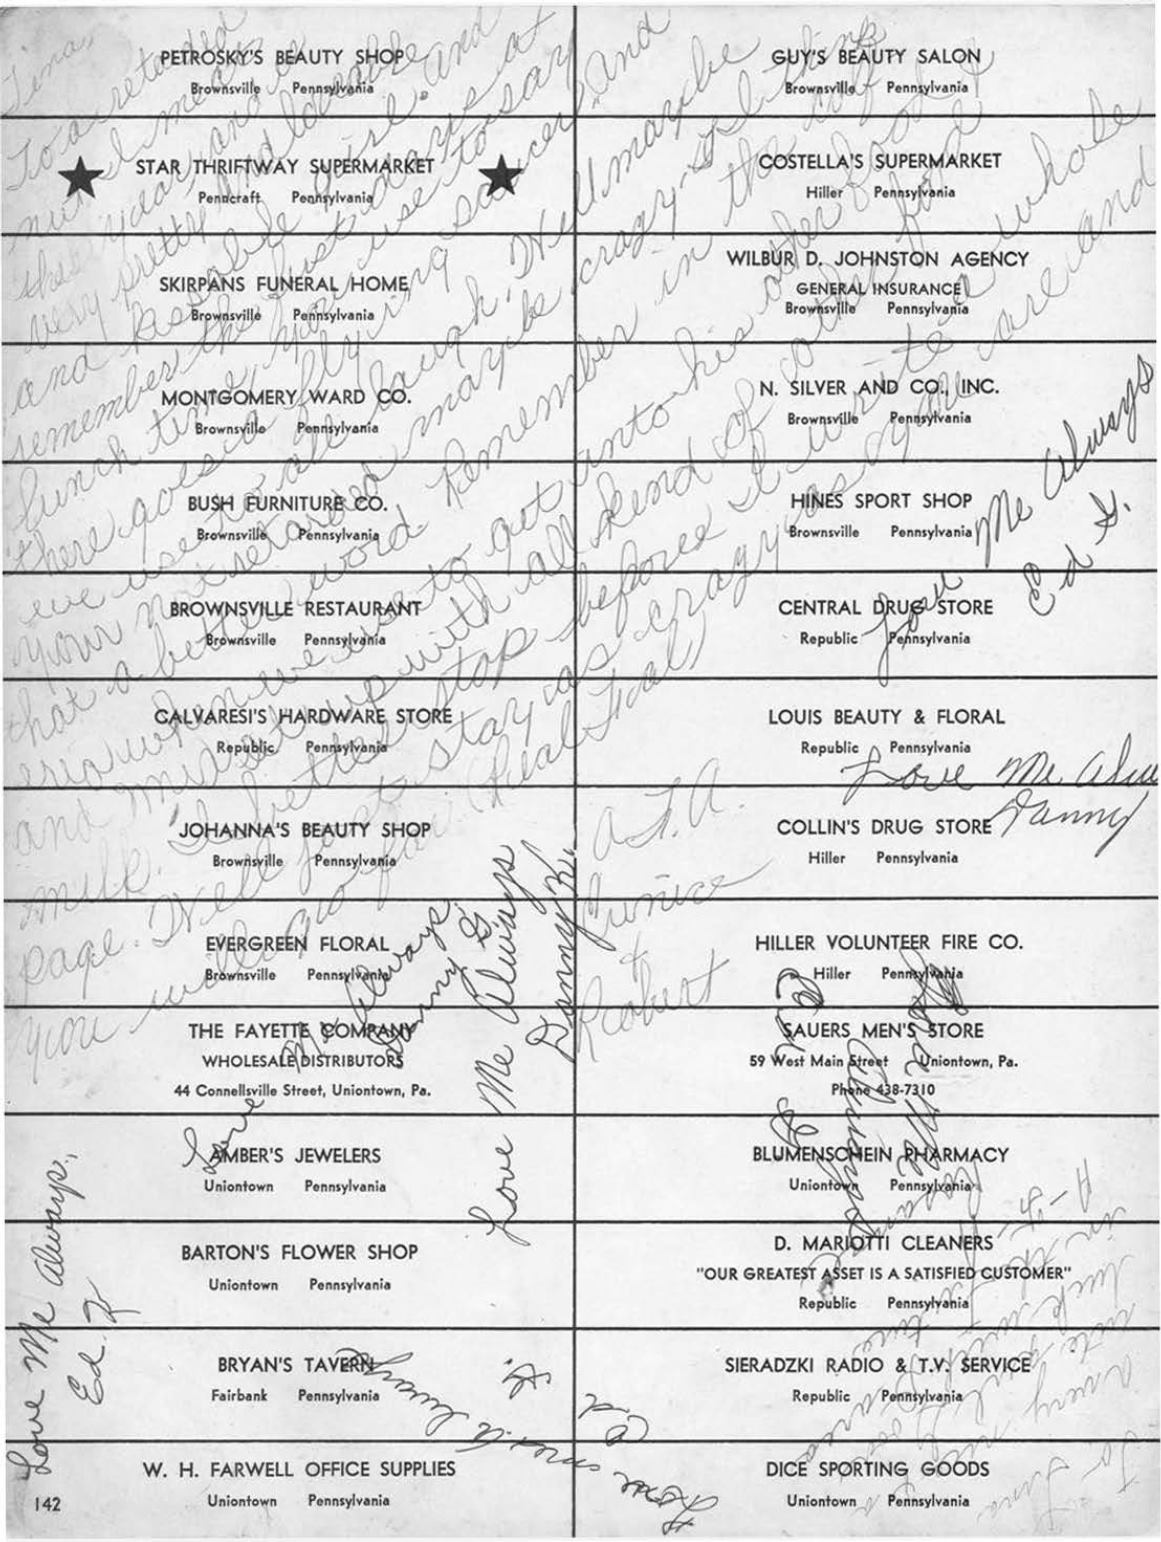 PETROSKY'S BEAUTY SHOP
Brownsville Pennsylvania
STAR THRIFTWAY SUPERMARKET
Penncraft Pennsylvania
SKIRPANS FUNERAL HOME
Brownsville Pennsylvania
MONTGOMERY WARD CO.
Brownsville Pennsylvania
BUSH FURNITURE CO.
Brownsville Pennsylvania
BROWNSVILLE RESTAURANT
Brownsville Pennsylvania
CALVARESI'S HARDWARE STORE
Republic Pennsylvania
JOHANNA'S BEAUTY SHOP
Brownsville Pennsylvania
EVERGREEN FLORAL
Brownsville Pennsylvania
THE FAYETTE COMPANY
WHOLESALE DISTRIBUTORS
44 Connellsville Street, Uniontown, Pa.
AMBER'S JEWELERS
Uniontown Pennsylvania
BARTON'S FLOWER SHOP
Uniontown Pennsylvania
BRYAN'S TAVERN
Fairbank Pennsylvania
W. H. FARWELL OFFICE SUPPLIES
Uniontown Pennsylvania
142
GUY'S BEAUTY SALON
Brownsville Pennsylvania
COSTELLA'S SUPERMARKET
Hiller Pennsylvania
WILBUR D. JOHNSTON AGENCY
GENERAL INSURANCE
Brownsville Pennsylvania
N. SILVER AND CO., INC.
Brownsville Pennsylvania
HINES SPORT SHOP
Brownsville Pennsylvania
CENTRAL DRUG STORE
Republic Pennsylvania
LOUIS BEAUTY & FLORAL
Republic Pennsylvania
COLLIN'S DRUG STORE
Hiller Pennsylvania
HILLER VOLUNTEER FIRE CO.
Hiller Pennsylvania
SAUERS MEN'S STORE
59 West Main Street Uniontown, Pa.
Phone 438-7310
BLUMENSCHEIN PHARMACY
Uniontown Pennsylvania
D. MARIOTTI CLEANERS
"OUR GREATEST ASSET IS A SATISFIED CUSTOMER"
Republic Pennsylvania
SIERADZKI RADIO & T.V. SERVICE
Republic Pennsylvania
DICE SPORTING GOODS
Uniontown Pennsylvania
Tina,
To a retarded
nut I met
this year and a
very pretty and loveable
and kissable girl. and
remember the just days at
lunch time, you use to say
there goes a flying saucer, and
we use to all laugh. Well maybe
your not retarded maybe crazy I think
that a better word. Remember in the caf
eria when we use to get into his
and milk up with all kend of other food
milk. I better stop before I write a whole
page. Well just stay as crazy as you are and
you will go far. (Real Far)
A.F.A.
Junice
+
Robert
Love Me Always
Ed G.
Love Me Alw
Danny
Love Me Always
Danny G
Love Me Always
Danny K.
Love Me Always,
Ed. K
Love me Always
Ed G.
Love Me Always
Ed G
To Tina
A very nice
Good
luck in the future
A-F-